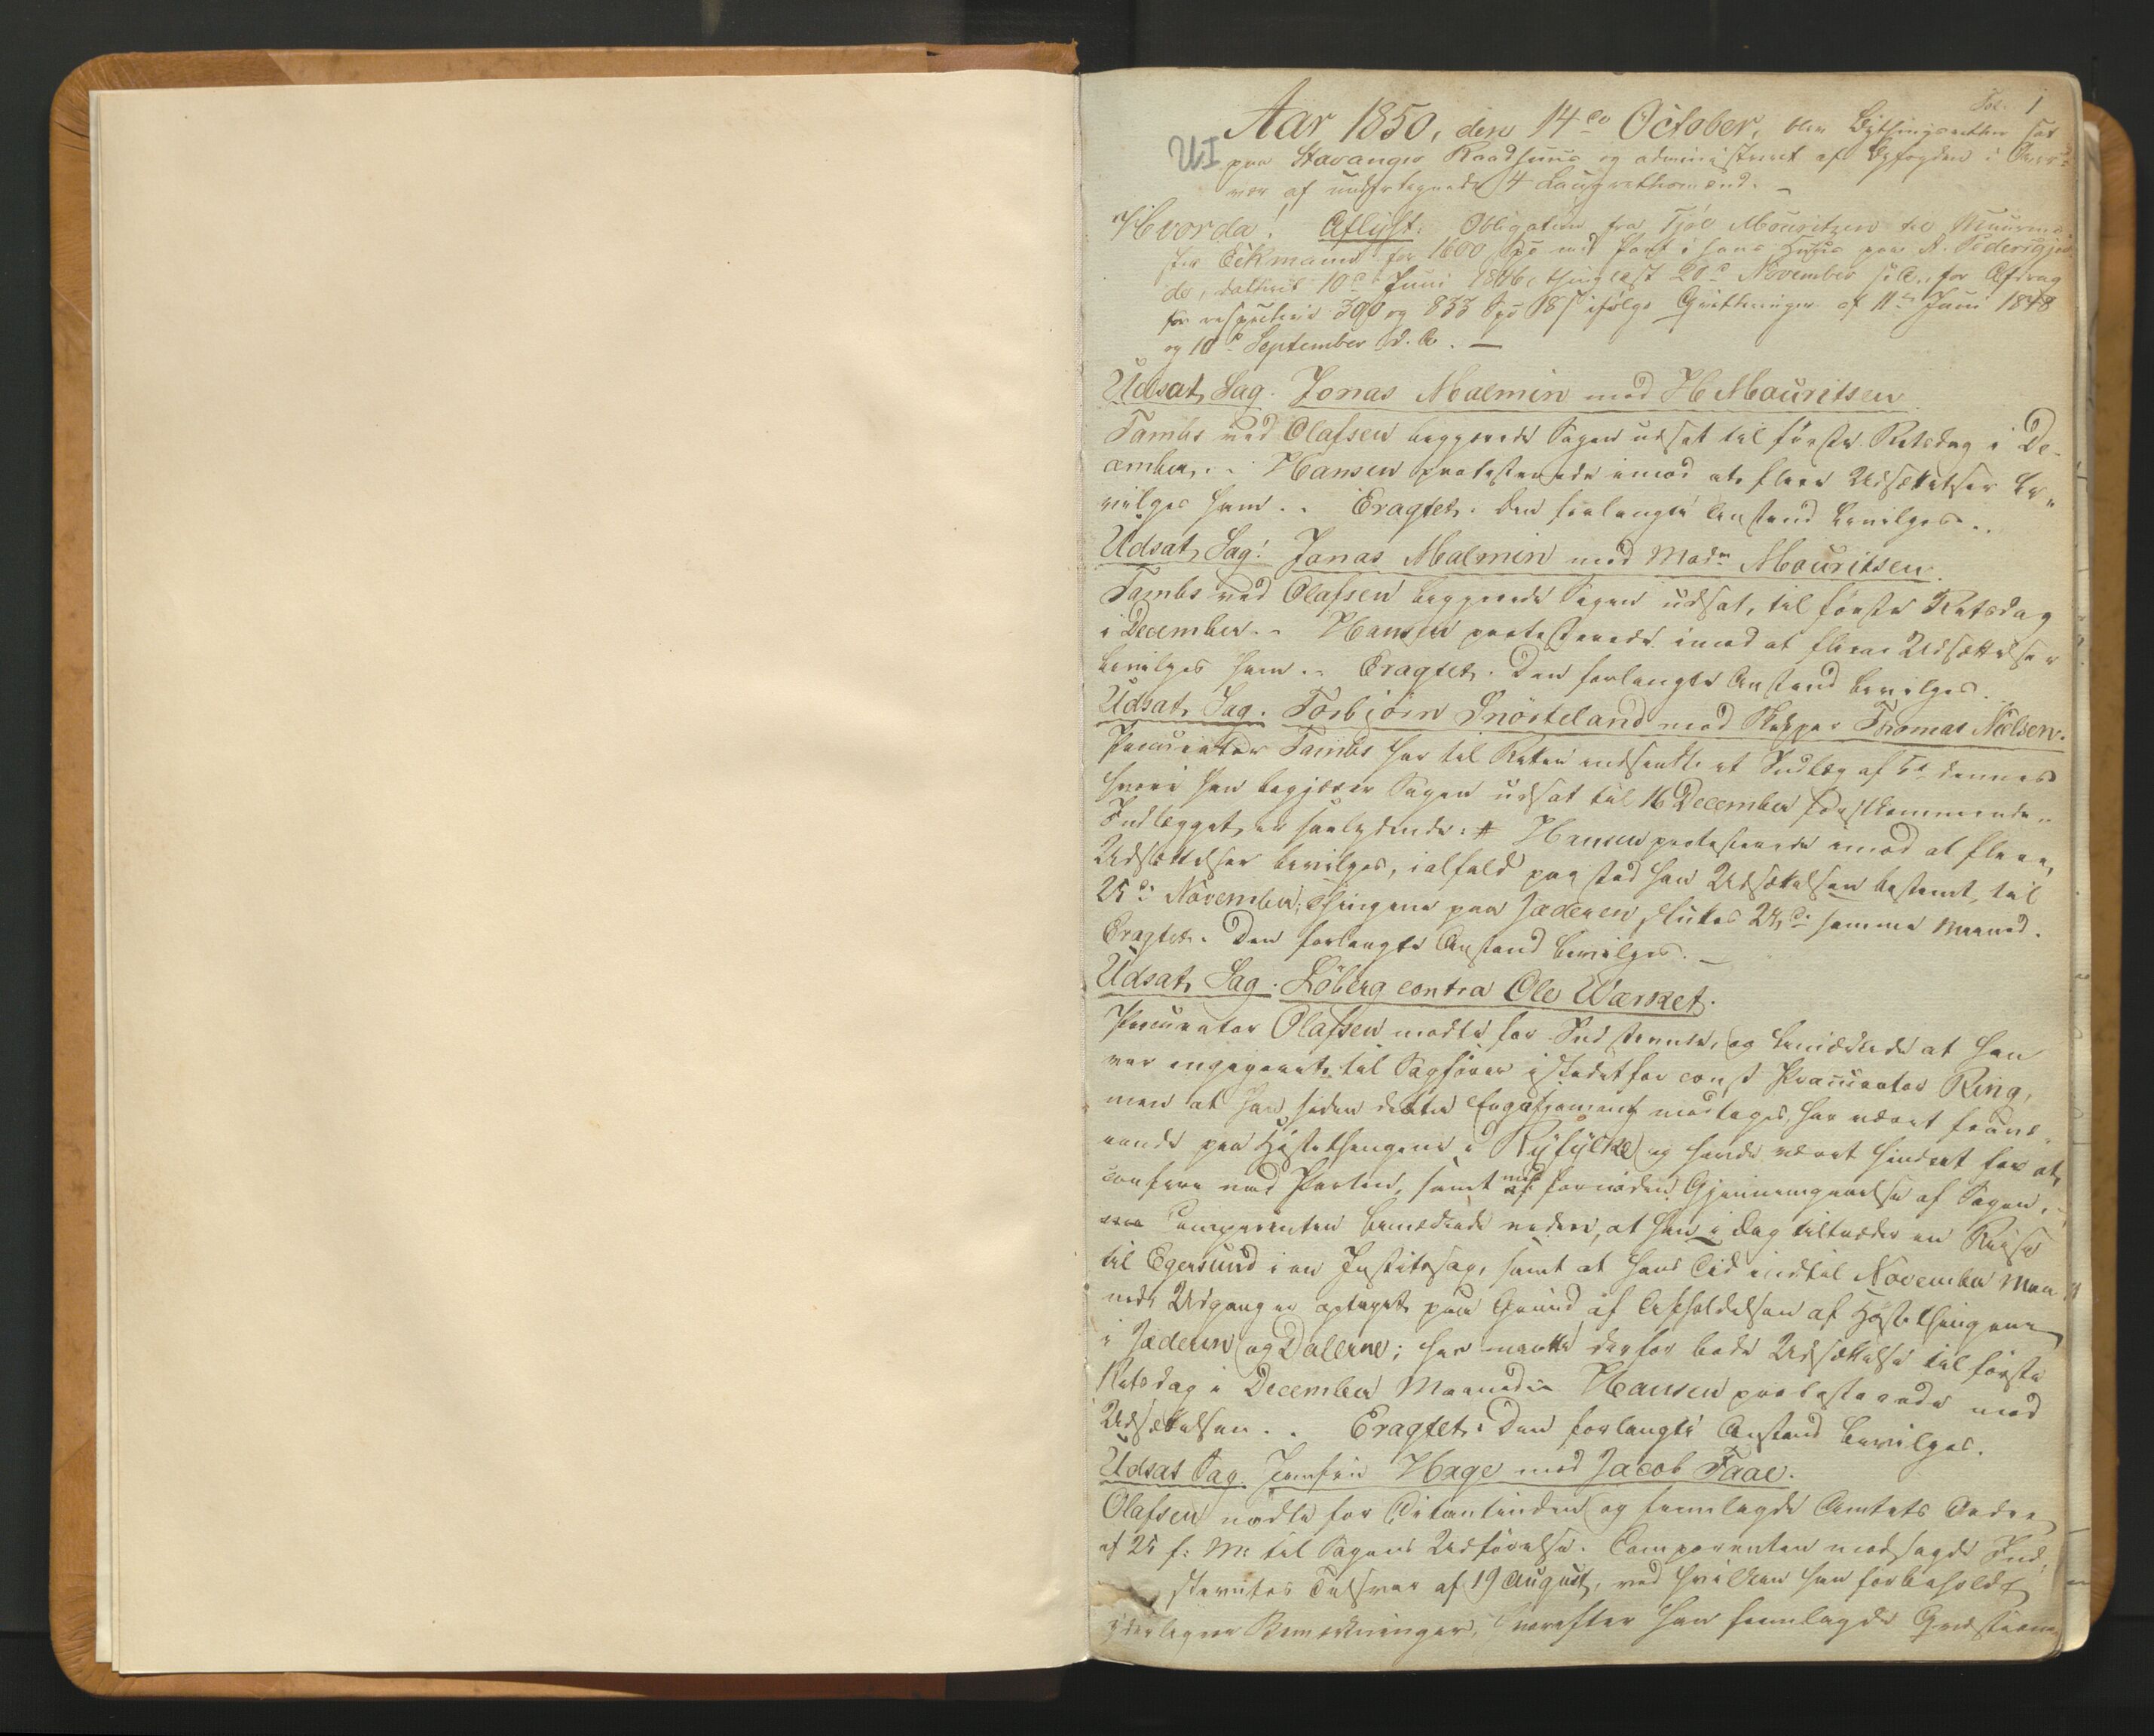 Fol. 1
Aar 1850, den 14de October, blev Bythingsretten sat
UI
paa Stavanger Raadhuus og administreret af Byfogden i Over-
vær af undertegnede 4 Laugrettesmænd. —
Hvorda! Aflyst: Obligation fra Mouritzen til Muurme-
ster Eckmann for 1600 Spd med Pant i hans Huus paa A. Pedersgje-
de, dateret 10de Juni 1846, thinglæst 20d November s. A., for Afdrag
for respective 390 og 833 Spd 18 s ifølge Qvitteringer af 11te Juni 1848
og 10d September d. A. . —
Udsat Sag. Jonas Malmin mod H Mauritsen.
Tambs ved Olafsen begjærede Sagen udsat til første Retsdag i De-
cember. .. Hansen protesterede imod at flere Udsættelser be„
vilges ham. .. Eragtet. den forlangte Anstand bevilges ..
Udsat Sag: Jonas Malmin mod Madm Mouritsen.
Tambs ved Olafsen begjærede Sagen udsat, til første Retsdag
i December. .. Hansen protesterede imod at flere Udsættelser
bevilges ham. .. Eragtet. Den forlangte Anstand bevilges.
Udsat Sag. Torbjörn Snörteland mod Skipper Thomas Nielsen.
Procurator Tambs har til Retten indsendt et Indlæg af dennes
hvori han begjærer Sagen udsat til 16 December førstkommende ..
Indlægget er saalydende: # Hansen protesterede imod at flere
Udsættelser bevilges, ialfald paastod han Udsættelsen bestemt til
25d November; Thingene paa Jæderen sluttes samme Maaned.
Eragtet. Den forlangte Anstand bevilges. —
Udsat Sag. Löberg contra Ole Wærket.
Procurator Olafsen mødte for Indstevnte, og bemærkede at han
var engageret til Sagfører istedetfor const Procurator Ring,
men at han siden dette Engagement modtoges, har været fravæ-
rende paa Høstethingene i Ryfylke og havde været hindret for at
confere med Parten, samt med fornøden Gjennemgaaelse af Sagen. ..
Comparenten bemærkede videre, at han i Dag tiltræder en Reise
til Egersund i en Justitssag, samt at hans Tid indtil November Maa-
neds Udgang er optaget paa Grund af Afholdelsen af Høstethingene
i Jæderen og Dalerne; han maatte derfor bede Udsættelse til første
Retsdag i December Maaned .. Hansen protesterede mod
Udsættelsen. .. Eragtet. Den forlangte Anstand bevilges.
Udsat Sag. Jomfru Hage mod Jacob Faae.
Olafsen mødte for Citantinden og fremlagde Amtets Ordre
af 25 f: M: til Sagens Udførelse. Comparenten modsagde Ind-
stevntes Tilsvar af 19 August, ved hvilken han forbeholdt
yderligere Bemærkninger, hvorefter han fremlagde